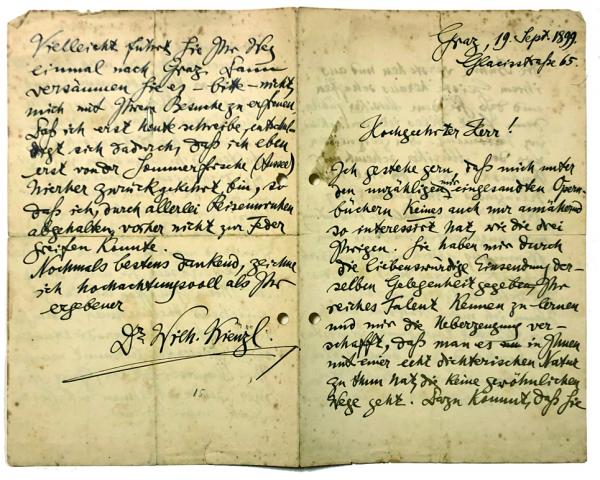 Graz, 19. Sept. 1899.
Glacisstraße 65.
Hochgeehrter Herr!
Ich gestehe gern, daß mich unter
den unzähligen mir eingesandten Opern-
büchern keines auch nur annähernd
so interessirt hat, wie die drei
Ihrigen. Sie haben mir durch
die liebenswürdige Einsendung der-
selben Gelegenheit gegeben, Ihr
reiches Talent kennen zu lernen
und mir die Ueberzeugung ver-
schafft, daß man es in Ihnen
mit einer echt dichterischen Natur
zu thun hat, die keine gewöhnlichen
Wege geht. Dazu kommt, daß Sie
Vielleicht führt Sie Ihr Weg
einmal nach Graz. Dann
versäumen Sie es – bitte – nicht,
mich mit Ihrem Besuche zu erfreuen.
Daß ich erst heute schreibe, entschul-
digt sich dadurch, daß ich eben
erst von der Sommerfrische (Aussee)
hierher zurückgekehrt bin, so
daß ich, durch allerlei Reiseunruhen
abgehalten, vorher nicht zur Feder
greifen konnte.
Nochmals bestens dankend, zeichne
ich hochachtungsvoll als Ihr
ergebener
Dr. Wilh. Kienzl.
15